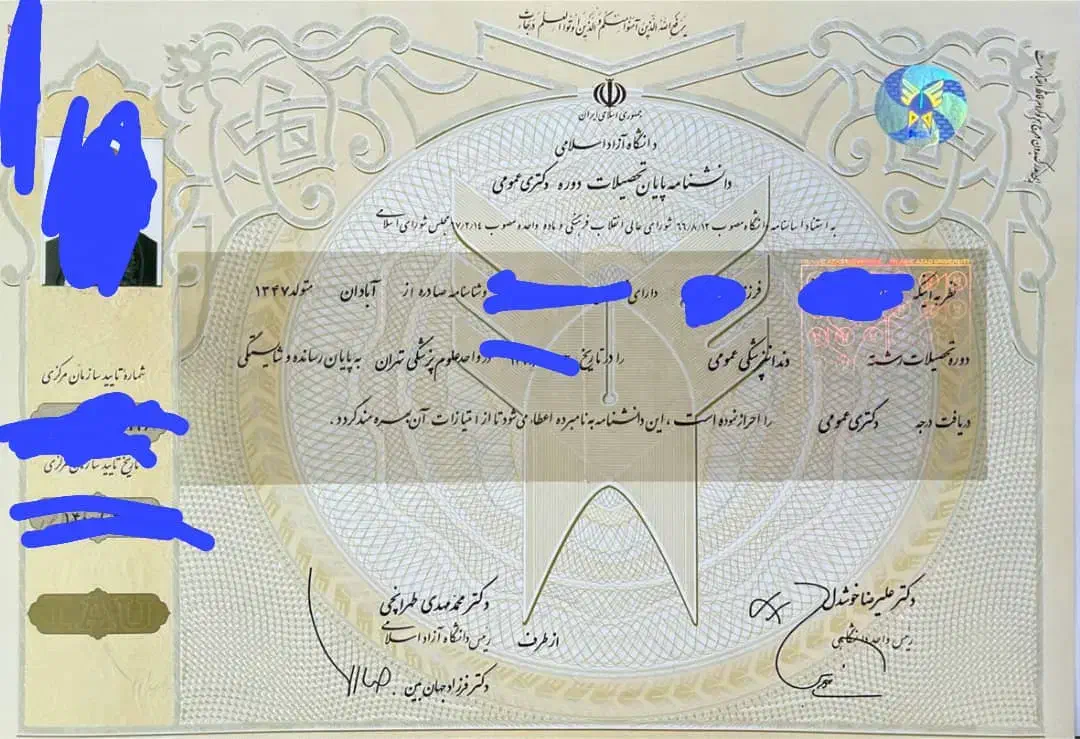 یرفع الله الذین آمنوا منکم و الذین اوتوا العلم درجات
جمهوری اسلامی ایران
دانشگاه آزاد اسلامی
دانشنامه پایان تحصیلات دوره دکتری عمومی
به استناد اساسنامه دانشگاه مصوب ۶۶/۸/۱۲ شورای عالی انقلاب فرهنگی و ماده واحده مصوب ۶۷/۲/۱۴ مجلس شورای اسلامی
ISLAMIC AZAD UNIVERSITY
نظر به اینکه دارای و شناسنامه صادره از آبادان متولد ۱۳۴۷
دوره تحصیلات رشته دندانپزشکی عمومی را در تاریخ در واحد علوم پزشکی تهران به پایان رسانده و شایستگی
دریافت درجه دکتری عمومی را احراز نموده است ، این دانشنامه به نامبرده اعطاء می شود تا از امتیازات آن بهره مند گردد .
شماره تایید سازمان مرکزی
تاریخ تایید سازمان مرکزی
IAU
دکتر علیرضا خوشدل
رئیس واحد دانشگاهی
دکتر محمدمهدی طهرانچی
رئیس دانشگاه آزاد اسلامی
از طرف
دکتر فرزاد جهان بین